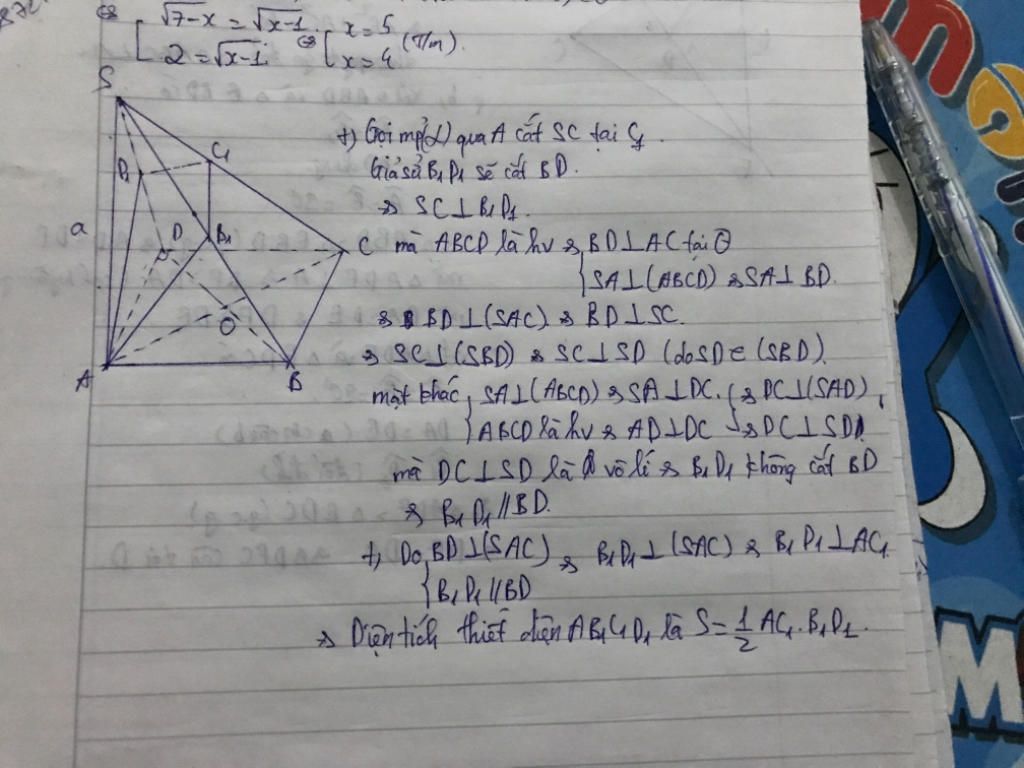 √7-x = √x-1
2 = √x-1
x = 5
x = 4
(T/m).
S
D₁
C₁
a
D
B₁
C
O
A
B
+) Gọi mp(α) qua A cắt SC tại C₁.
Giả sử B₁D₁ sẽ cắt BD.
=> SC ⊥ B₁D₁.
mà ABCD là hv => BD ⊥ AC tại O
SA ⊥ (ABCD) => SA ⊥ BD.
=> BD ⊥ (SAC) => BD ⊥ SC.
=> SC ⊥ (SBD) => SC ⊥ SD (do SD ∈ (SBD).
mặt khác { SA ⊥ (ABCD) => SA ⊥ DC. } => DC ⊥ (SAD)
ABCD là hv => AD ⊥ DC => DC ⊥ SD
mà DC ⊥ SD là vô lí => B₁D₁ không cắt BD
=> B₁D₁ // BD.
+) Do { BD ⊥ (SAC) => B₁D₁ ⊥ (SAC) => B₁D₁ ⊥ AC₁
B₁D₁ // BD
=> Diện tích thiết diện AB₁C₁D₁ là S = 1/2 AC₁. B₁D₁.